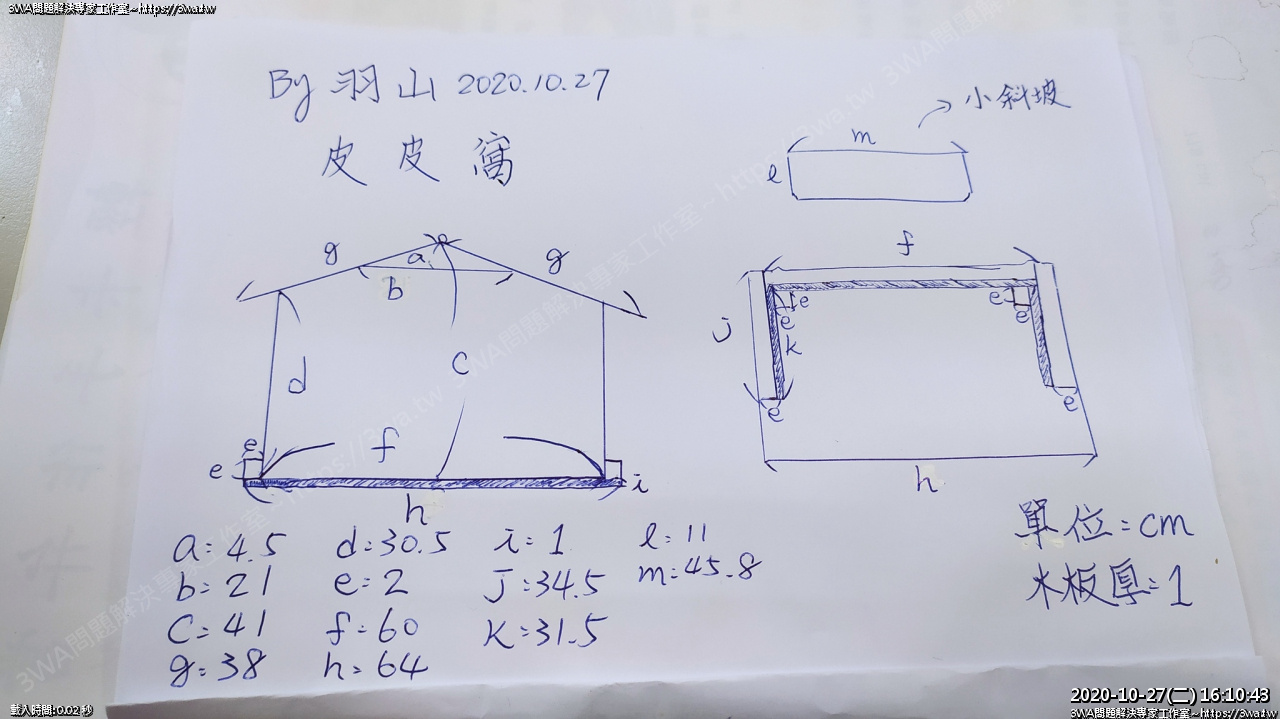 3WA問題解決專家工作室~https://3wa.tw
By 羽山 2020.10.27
皮皮窩
小斜坡
m
l
g
a
g
b
d
c
e
e
f
i
h
f
j
e
e
e
e
k
e
e
h
a=4.5 d=30.5 i=1 l=11
b=21 e=2 j=34.5 m=45.8
c=41 f=60 k=31.5
g=38 h=64
單位=cm
木板厚=1
3WA問題解決專家工作室~https://3wa.tw
載入時間:0.02 秒
2020-10-27(二) 16:10:43
3WA問題解決專家工作室~https://3wa.tw